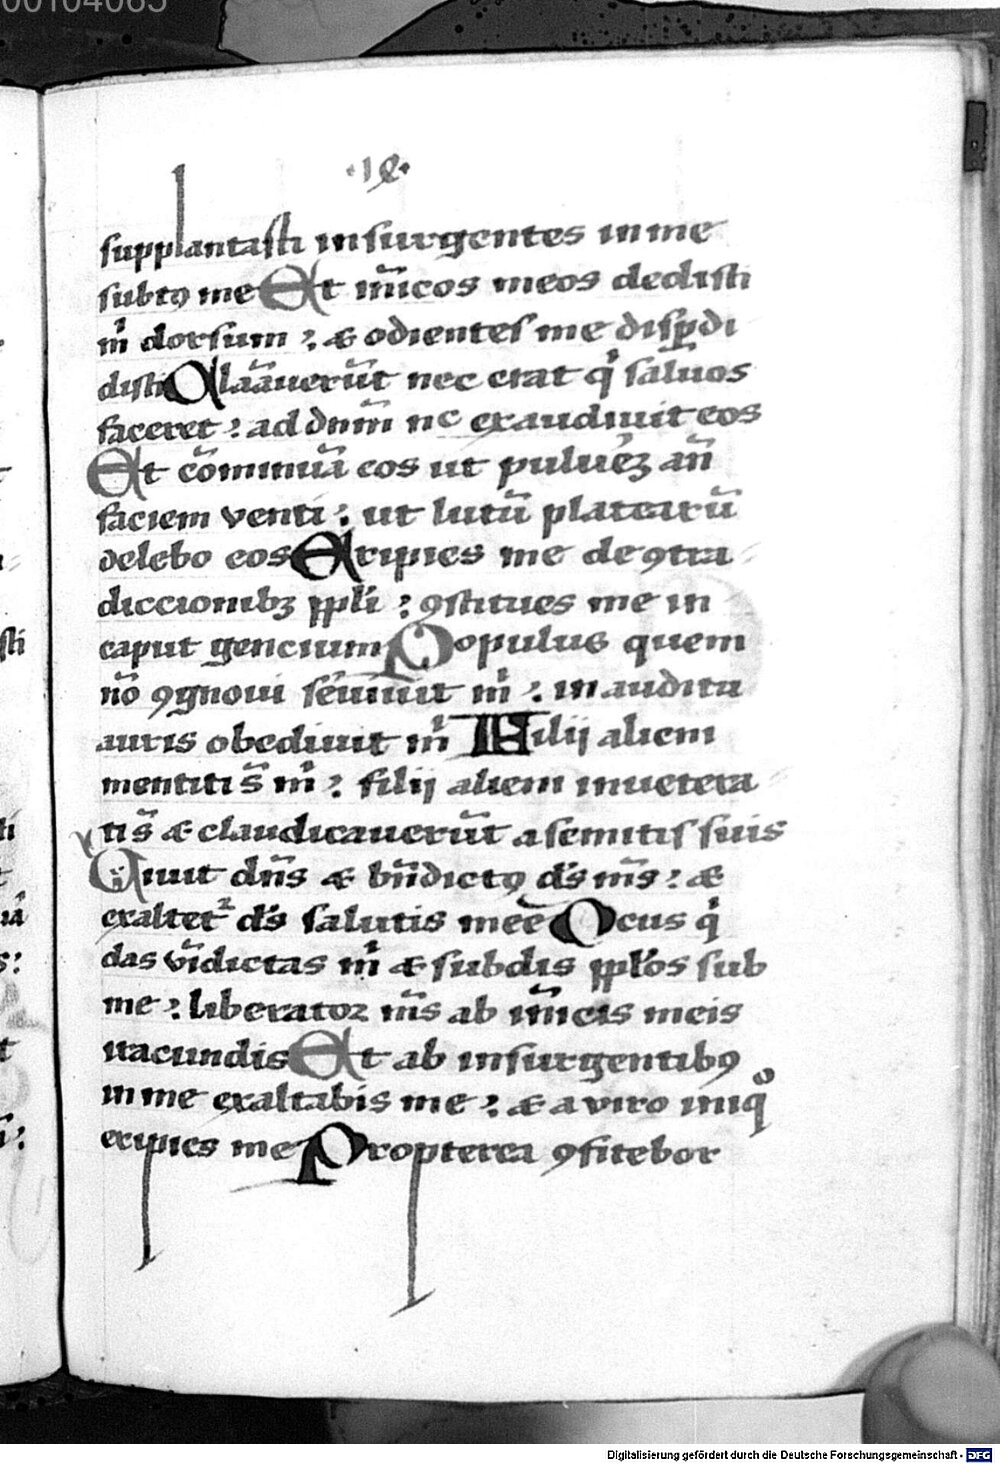 00104065
·18·
supplantasti insurgentes in me
subtꝰ me Et im̃icos meos dedisti
mⁱ dorsum : & odientes me disꝑdi
disti Claãueru̅t nec erat qⁱ saluos
faceret : ad dnm̃ nͨ exaudiuit eos
Et co̅minua̅ eos ut puluerꝫ an̅
faciem venti : ut lutu̅ plateau̅
delebo eos Eripies me de ꝯtra
diccionibꝫ ppl̅i : ꝯstitues me in
caput gencium Populus quem
no̅ ꝯgnoui seruiuit mⁱ : in auditu
auris obediuit mⁱ Filij alieni
mentiti s̅ mⁱ : filij alieni inuetera
ti s̅ & claudicaueru̅t a semitis suis
Viuit dn̅s & bn̅dictꝰ ds̅ ms̅ : &
exaltet᷑ ds̅ salutis mee Deus qⁱ
das vi̅dictas mⁱ & subdis ppl̅os sub
me : liberator ms̅ ab im̃icis meis
iracundis Et ab insurgentibꝰ
in me exaltabis me : & a viro iniqͦ
eripies me Propterea ꝯfitebor
Digitalisierung gefördert durch die Deutsche Forschungsgemeinschaft - DFG